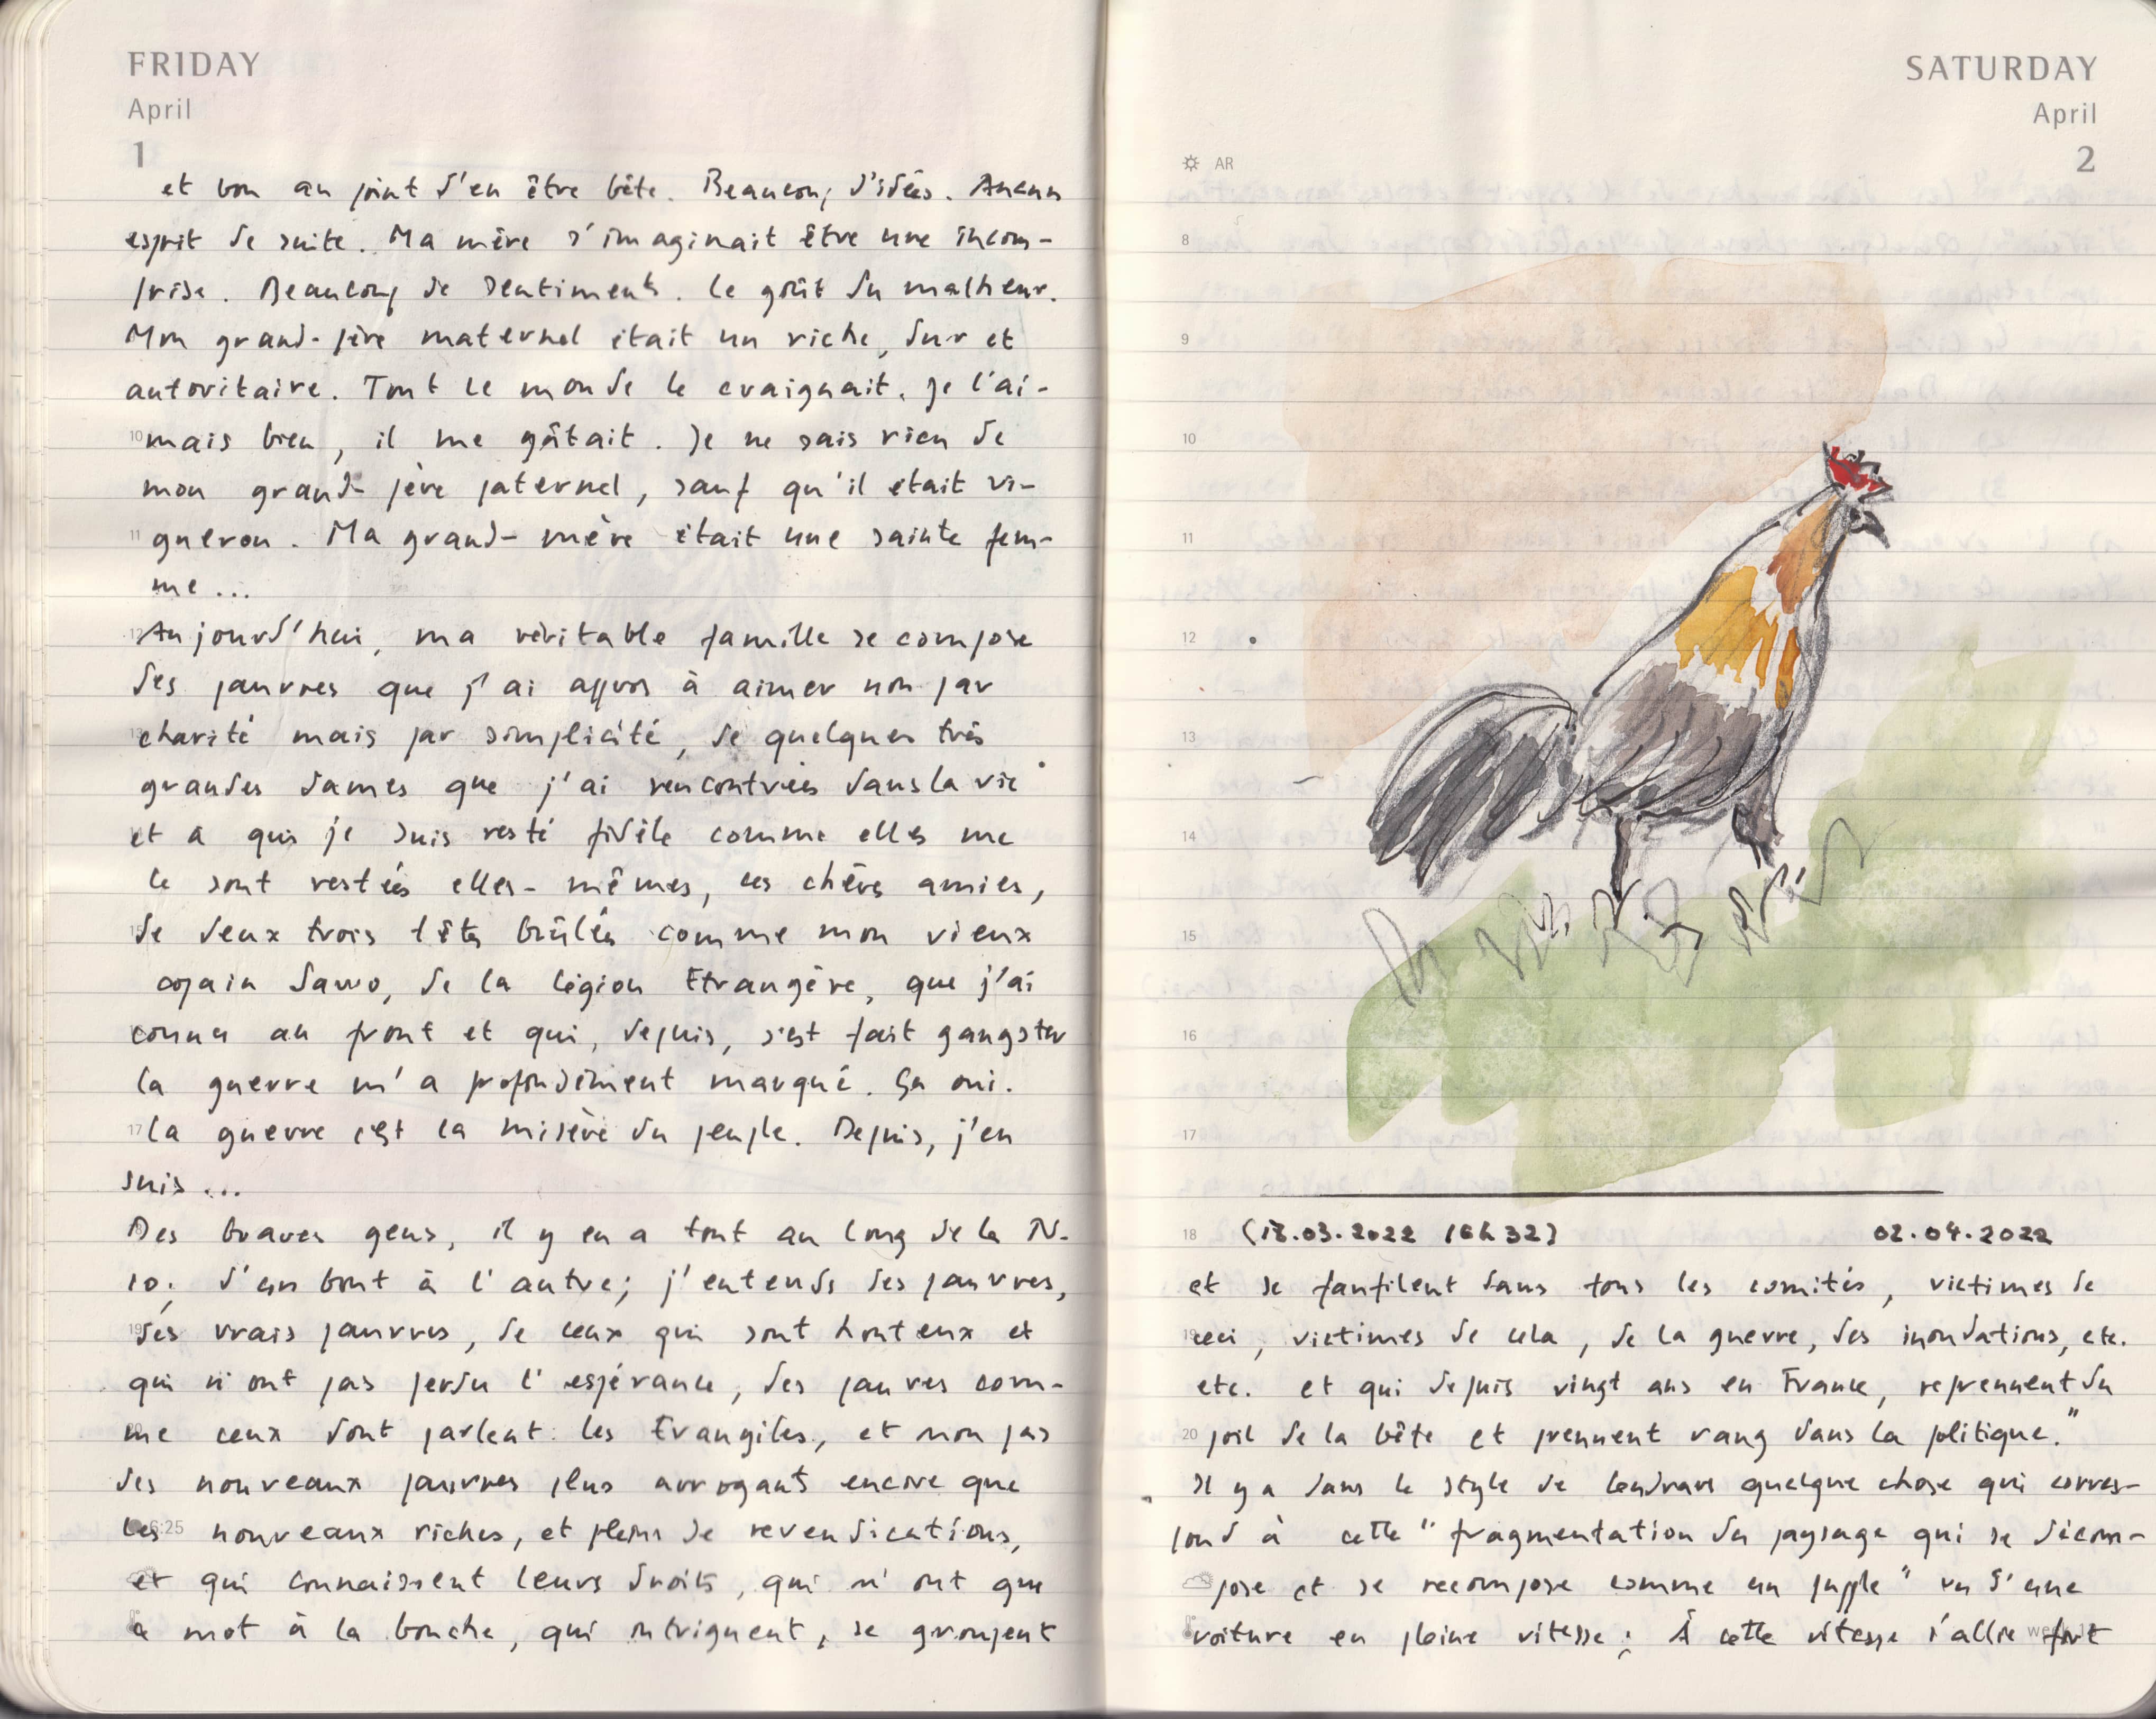 FRIDAY
April
1
et bon au point d'en être bête. Beaucoup d'idées. Aucun
esprit de suite. Ma mère s'imaginait être une incom-
prise. Beaucoup de sentiments. Le goût du malheur.
Mon grand-père maternel était un riche, dur et
autoritaire. Tout le monde le craignait. Je l'ai-
10 mais bien, il me gâtait. Je ne sais rien de
mon grand-père paternel, sauf qu'il était vi-
11 gneron. Ma grand-mère était une sainte fem-
me...
12 Aujourd'hui, ma véritable famille se compose
des pauvres que j'ai appris à aimer non par
13 charité mais par simplicité, de quelques très
grandes dames que j'ai rencontrées dans la vie
et à qui je suis resté fidèle comme elles me
le sont restées elles-mêmes, ces chères amies,
15 de deux trois têtes brûlées comme mon vieux
copain de la Légion Etrangère, que j'ai
connu au front et qui, depuis, s'est fait gangster
la guerre m'a profondément marqué. Ça oui.
17 La guerre c'est la misère du peuple. Depuis, j'en
suis...
Des braves gens, il y en a tout au long de la N.
10; d'un bout à l'autre; j'entends des pauvres,
19 des vrais pauvres, de ceux qui sont honteux et
qui n'ont pas perdu l'espérance, des pauvres com-
me ceux dont parlent les Evangiles, et non pas
des nouveaux pauvres plus arrogants encore que
6:25 les nouveaux riches, et pleins de revendications,
et qui connaissent leurs droits, qui n'ont que
ce mot à la bouche, qui intriguent, se groupent
SATURDAY
April
2
AR
8
9
10
11
12
13
14
15
16
17
18 (18.03.2022 16h32) 02.04.2022
et se faufilent dans tous les comités, victimes de
19 ceci, victimes de cela, de la guerre, des inondations, etc.
etc. et qui depuis vingt ans en France, reprennent du
20 poil de la bête et prennent rang dans la politique."
Il y a dans le style de Cendrars quelque chose qui corres-
pond à cette "fragmentation du paysage qui se décom-
pose et se recompose comme un puzzle" vu d'une
voiture en pleine vitesse; À cette vitesse s'allie fort
week